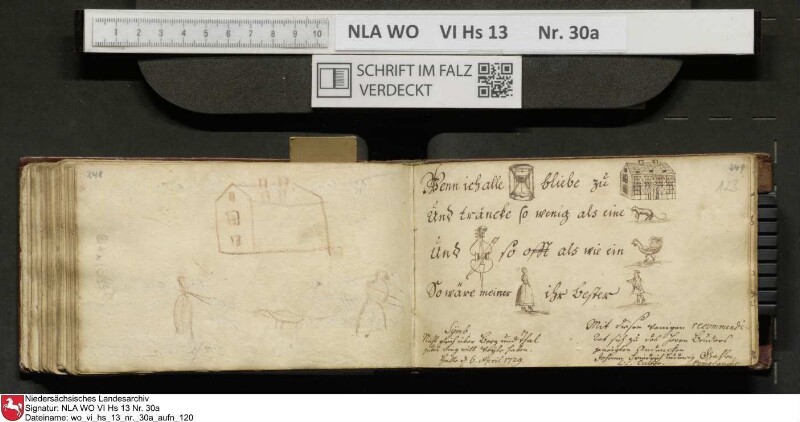 1 2 3 4 5 6 7 8 9 10
NLA WO VI Hs 13 Nr. 30a
SCHRIFT IM FALZ
VERDECKT
248
249
123
Wenn ich alle bliebe zu
Und träncke so wenig als eine
Und so offt als wie ein
So wäre meiner ihr bester
Symb.
Nicht über Berg und Thal
Halle d. 6. April 1729.
Mit diesen wenigen recommendi-
ret sich zu des Herrn Bruders
Andencken
Johann Friedrich Ludwig
Niedersächsisches Landesarchiv
Signatur: NLA WO VI Hs 13 Nr. 30a
Dateiname: wo_vi_hs_13_nr._30a_aufn_120